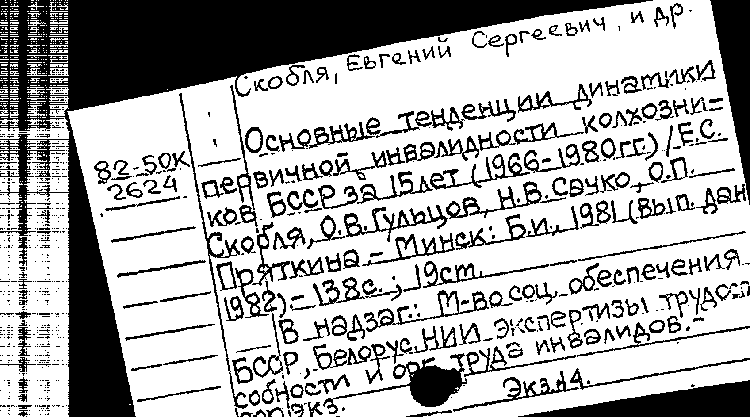 Скобля, Евгений Сергеевич, и др.
82-50К
2624
Основные тенденции динамики
первичной инвалидности колхозни-
ков БССР за 15 лет (1966-1980 гг.) / Е.С.
Скобля, О.В. Гульцов, Н.В. Сачко, О.П.
Пряткина. - Минск: Б.и., 1981 (вып. дан
1982) - 138 с. ; 19 см.
В надзаг.: М-во соц. обеспечения
БССР, Белорус. НИИ экспертизы трудосп
собности и орг. труда инвалидов. -
экз.
Экз. 14.